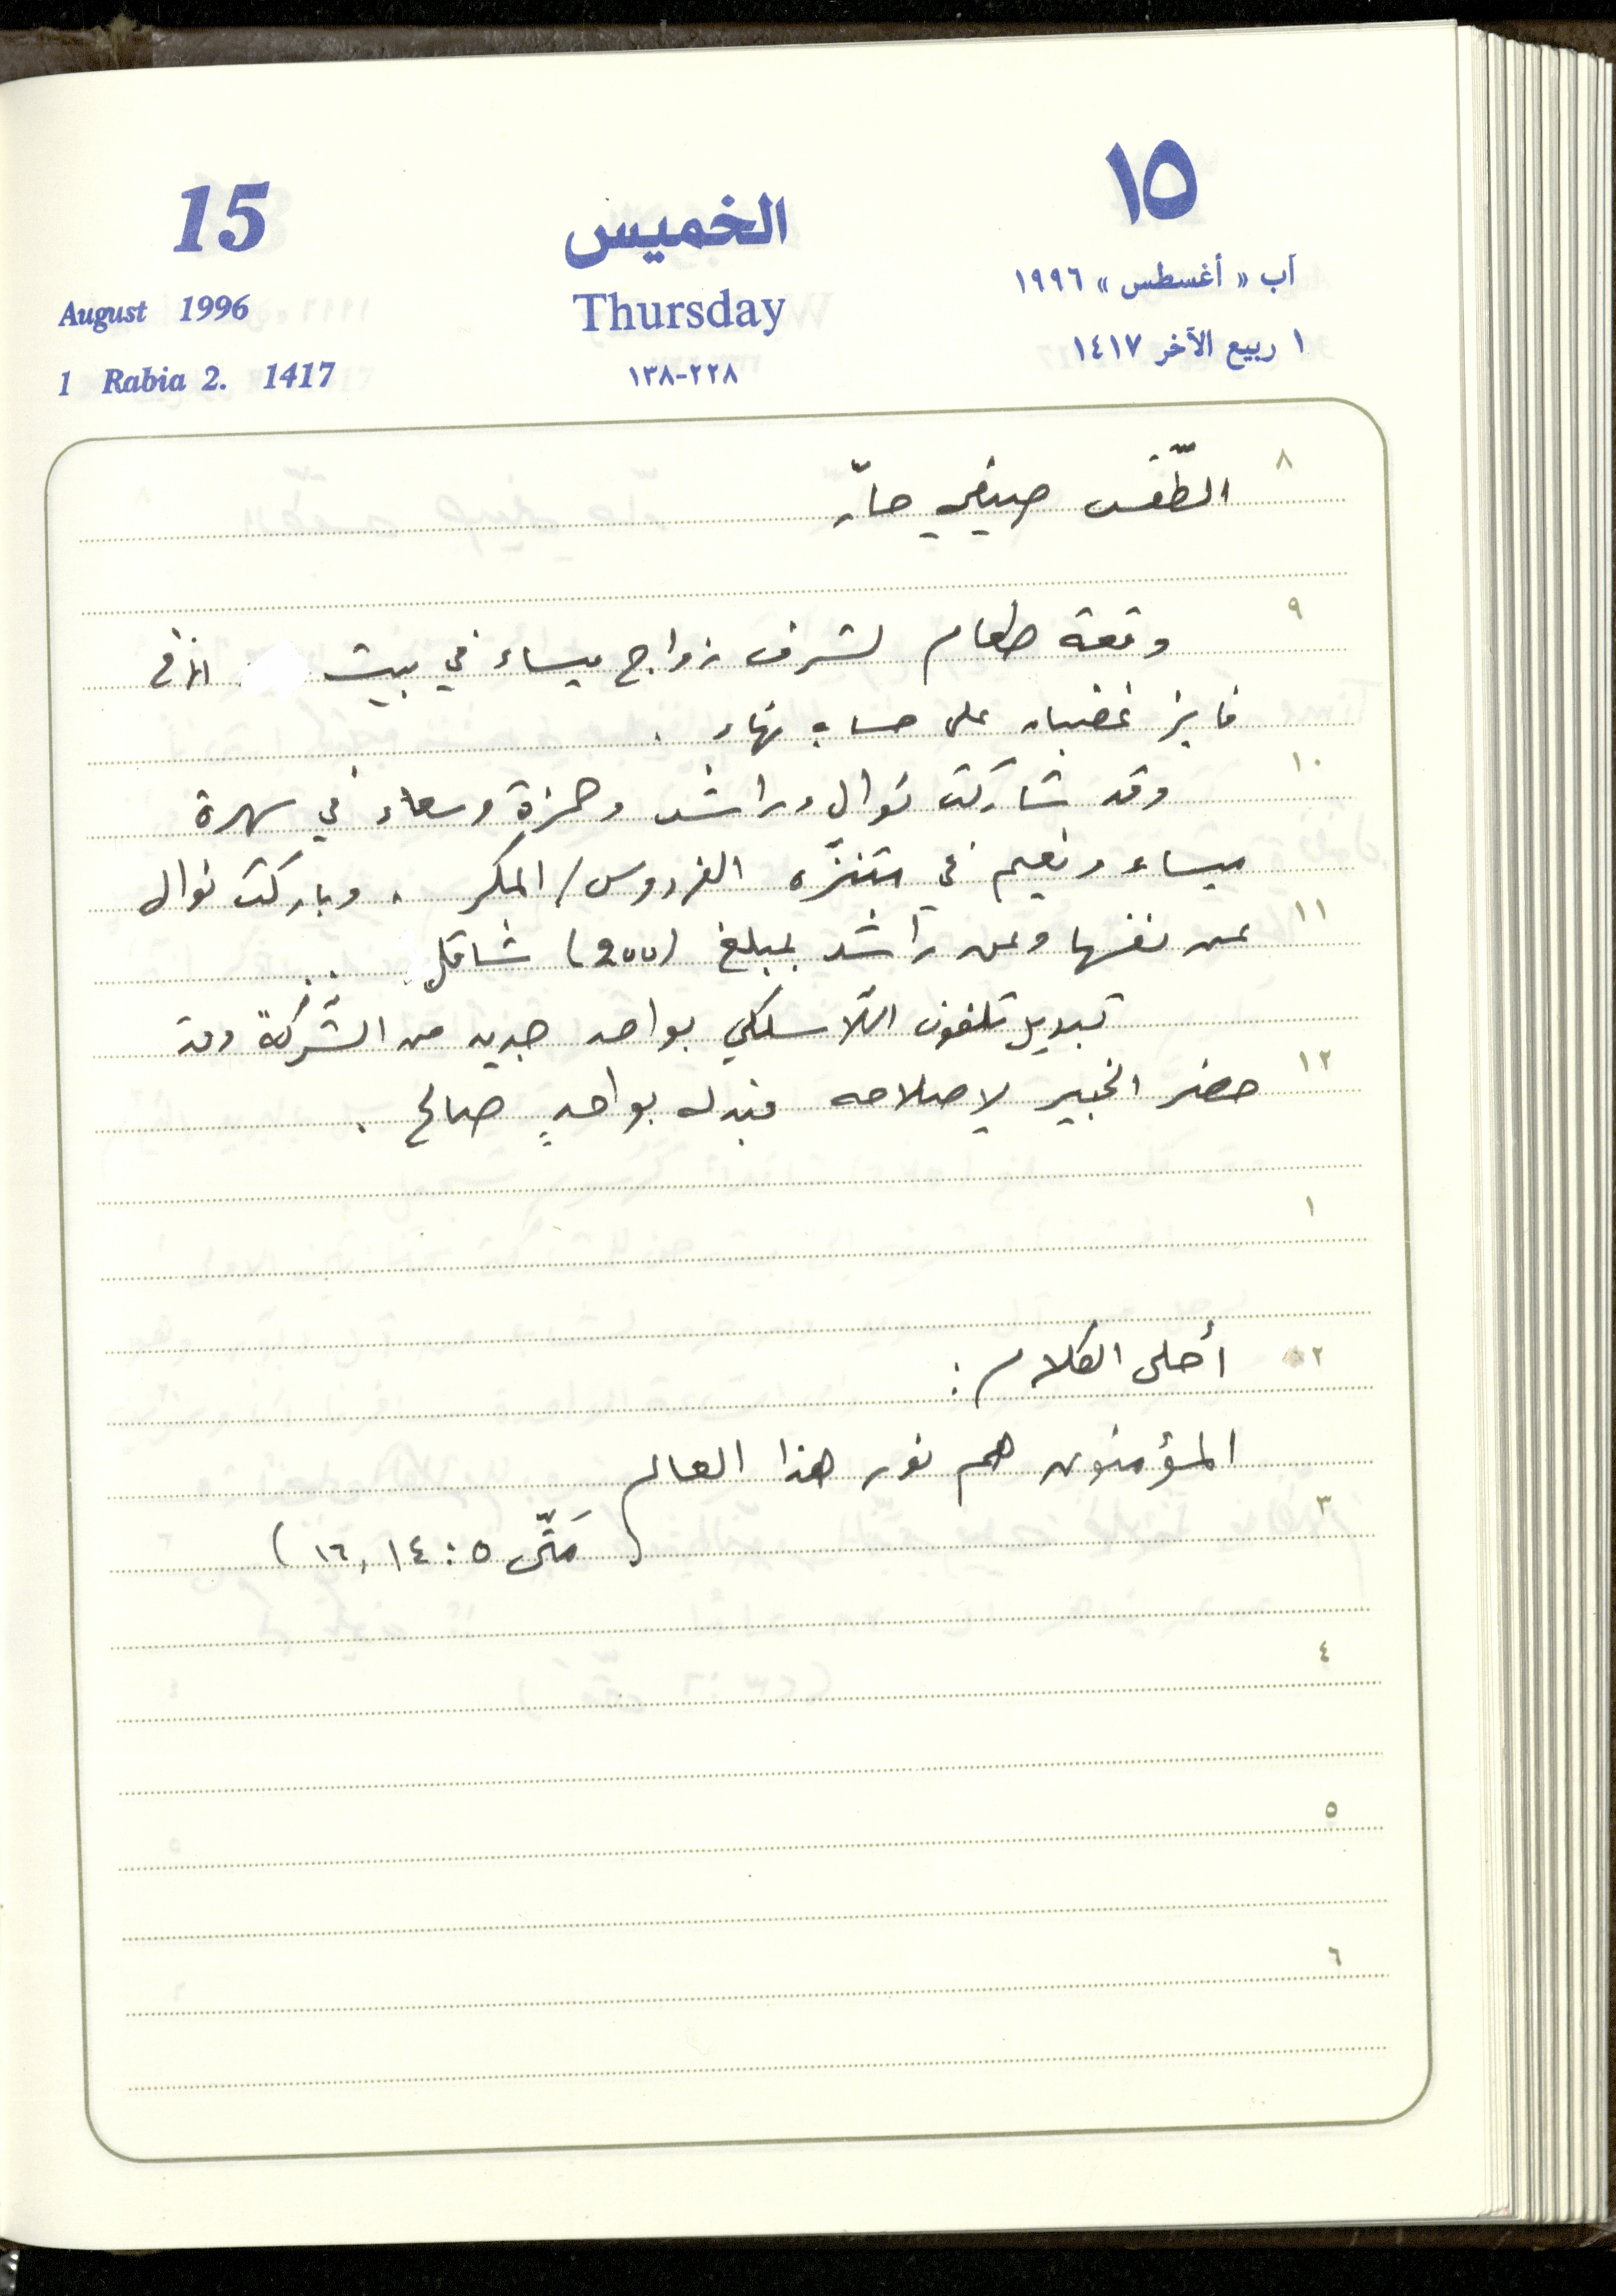 15
الخميس
١٥
August 1996
Thursday
آب « أغسطس » ١٩٩٦
1 Rabia 2. 1417
٢٢٨-١٣٨
١ ربيع الآخر ١٤١٧
٨
الطّقس صيفي حارّ
٩
وقعة طعام لشرف زواج ميساء في بيت الأخ
فايز غضبان على حساب نهاد .
١٠
وقد شاركت نوال وراشد وحمزة وسعاد في سهرة
ميساء ونعيم في متنزّه الفردوس / المكر . وباركت نوال
١١
عن نفسها وعن راشد بمبلغ (200) شاقل .
تبديل تلفون اللّاسلكي بواحد جديد من الشّركة وقد
١٢
حضر الخبير لإصلاحه فبدله بواحدٍ صالح .
١
٢
أحلى الكلام :
المؤمنون هم نور هذا العالم
٣
( مَتّى ٥ : ١٤ , ١٦ )
٤
٥
٦